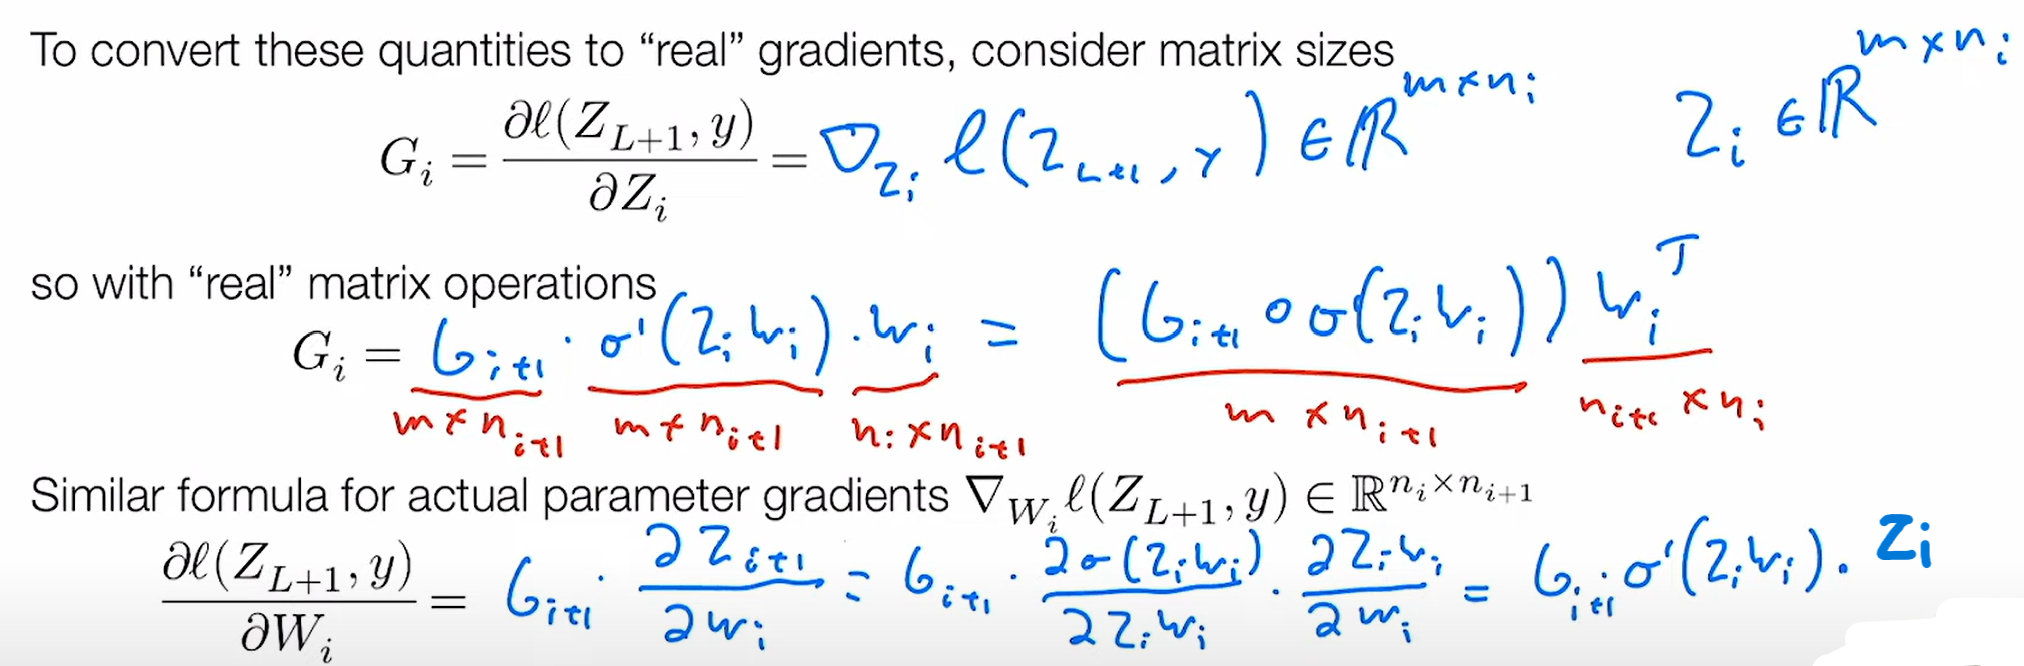 To convert these quantities to “real” gradients, consider matrix sizes
G_i = ∂ℓ(Z_{L+1}, y) / ∂Z_i = ∇_{Z_i} ℓ(Z_{L+1}, y) ∈ ℝ^{m×n_i} Z_i ∈ ℝ^{m×n_i}
so with “real” matrix operations
G_i = G_{i+1} · σ'(Z_i W_i) · W_i = (G_{i+1} ∘ σ(Z_i W_i)) W_i^T
m × n_{i+1} m × n_{i+1} n_i × n_{i+1} m × n_{i+1} n_{i+1} × n_i
Similar formula for actual parameter gradients ∇_{W_i} ℓ(Z_{L+1}, y) ∈ ℝ^{n_i × n_{i+1}}
∂ℓ(Z_{L+1}, y) / ∂W_i = G_{i+1} · ∂Z_{i+1} / ∂W_i = G_{i+1} · ∂σ(Z_i W_i) / ∂Z_i W_i · ∂Z_i W_i / ∂W_i = G_{i+1} · σ'(Z_i W_i) · Z_i